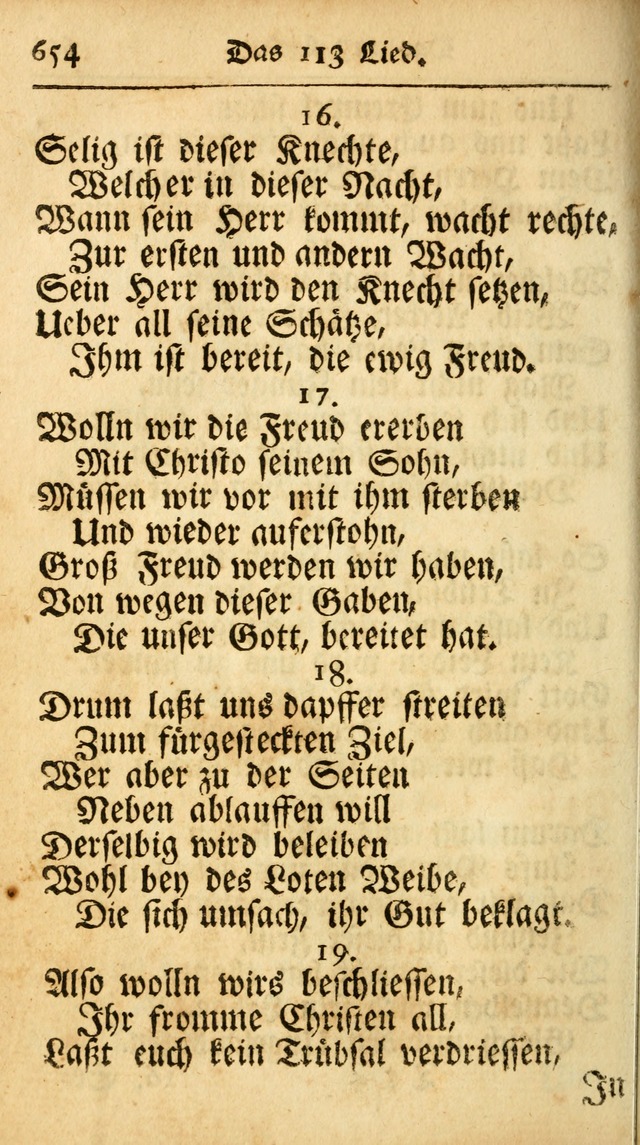 654 Das 113 Lied.
16.
Selig ist dieser Knechte,
Welcher in dieser Nacht,
Wann sein Herr kommt, wacht rechte,
Zur ersten und andern Wacht,
Sein Herr wird den Knecht setzen,
Ueber all seine Schätze,
Ihm ist bereit, die ewig Freud.
17.
Wolln wir die Freud ererben
Mit Christo seinem Sohn,
Müssen wir vor mit ihm sterben
Und wieder auferstohn,
Groß Freud werden wir haben,
Von wegen dieser Gaben,
Die unser Gott, bereitet hat.
18.
Drum laßt uns dapffer streiten
Zum fürgesteckten Ziel,
Wer aber zu der Seiten
Neben ablauffen will
Derselbig wird beleiben
Wohl bey des Loten Weibe,
Die sich umsach, ihr Gut beklagt.
19.
Also wolln wirs beschliessen,
Ihr fromme Christen all,
Laßt euch kein Trübsal verdriessen,
In